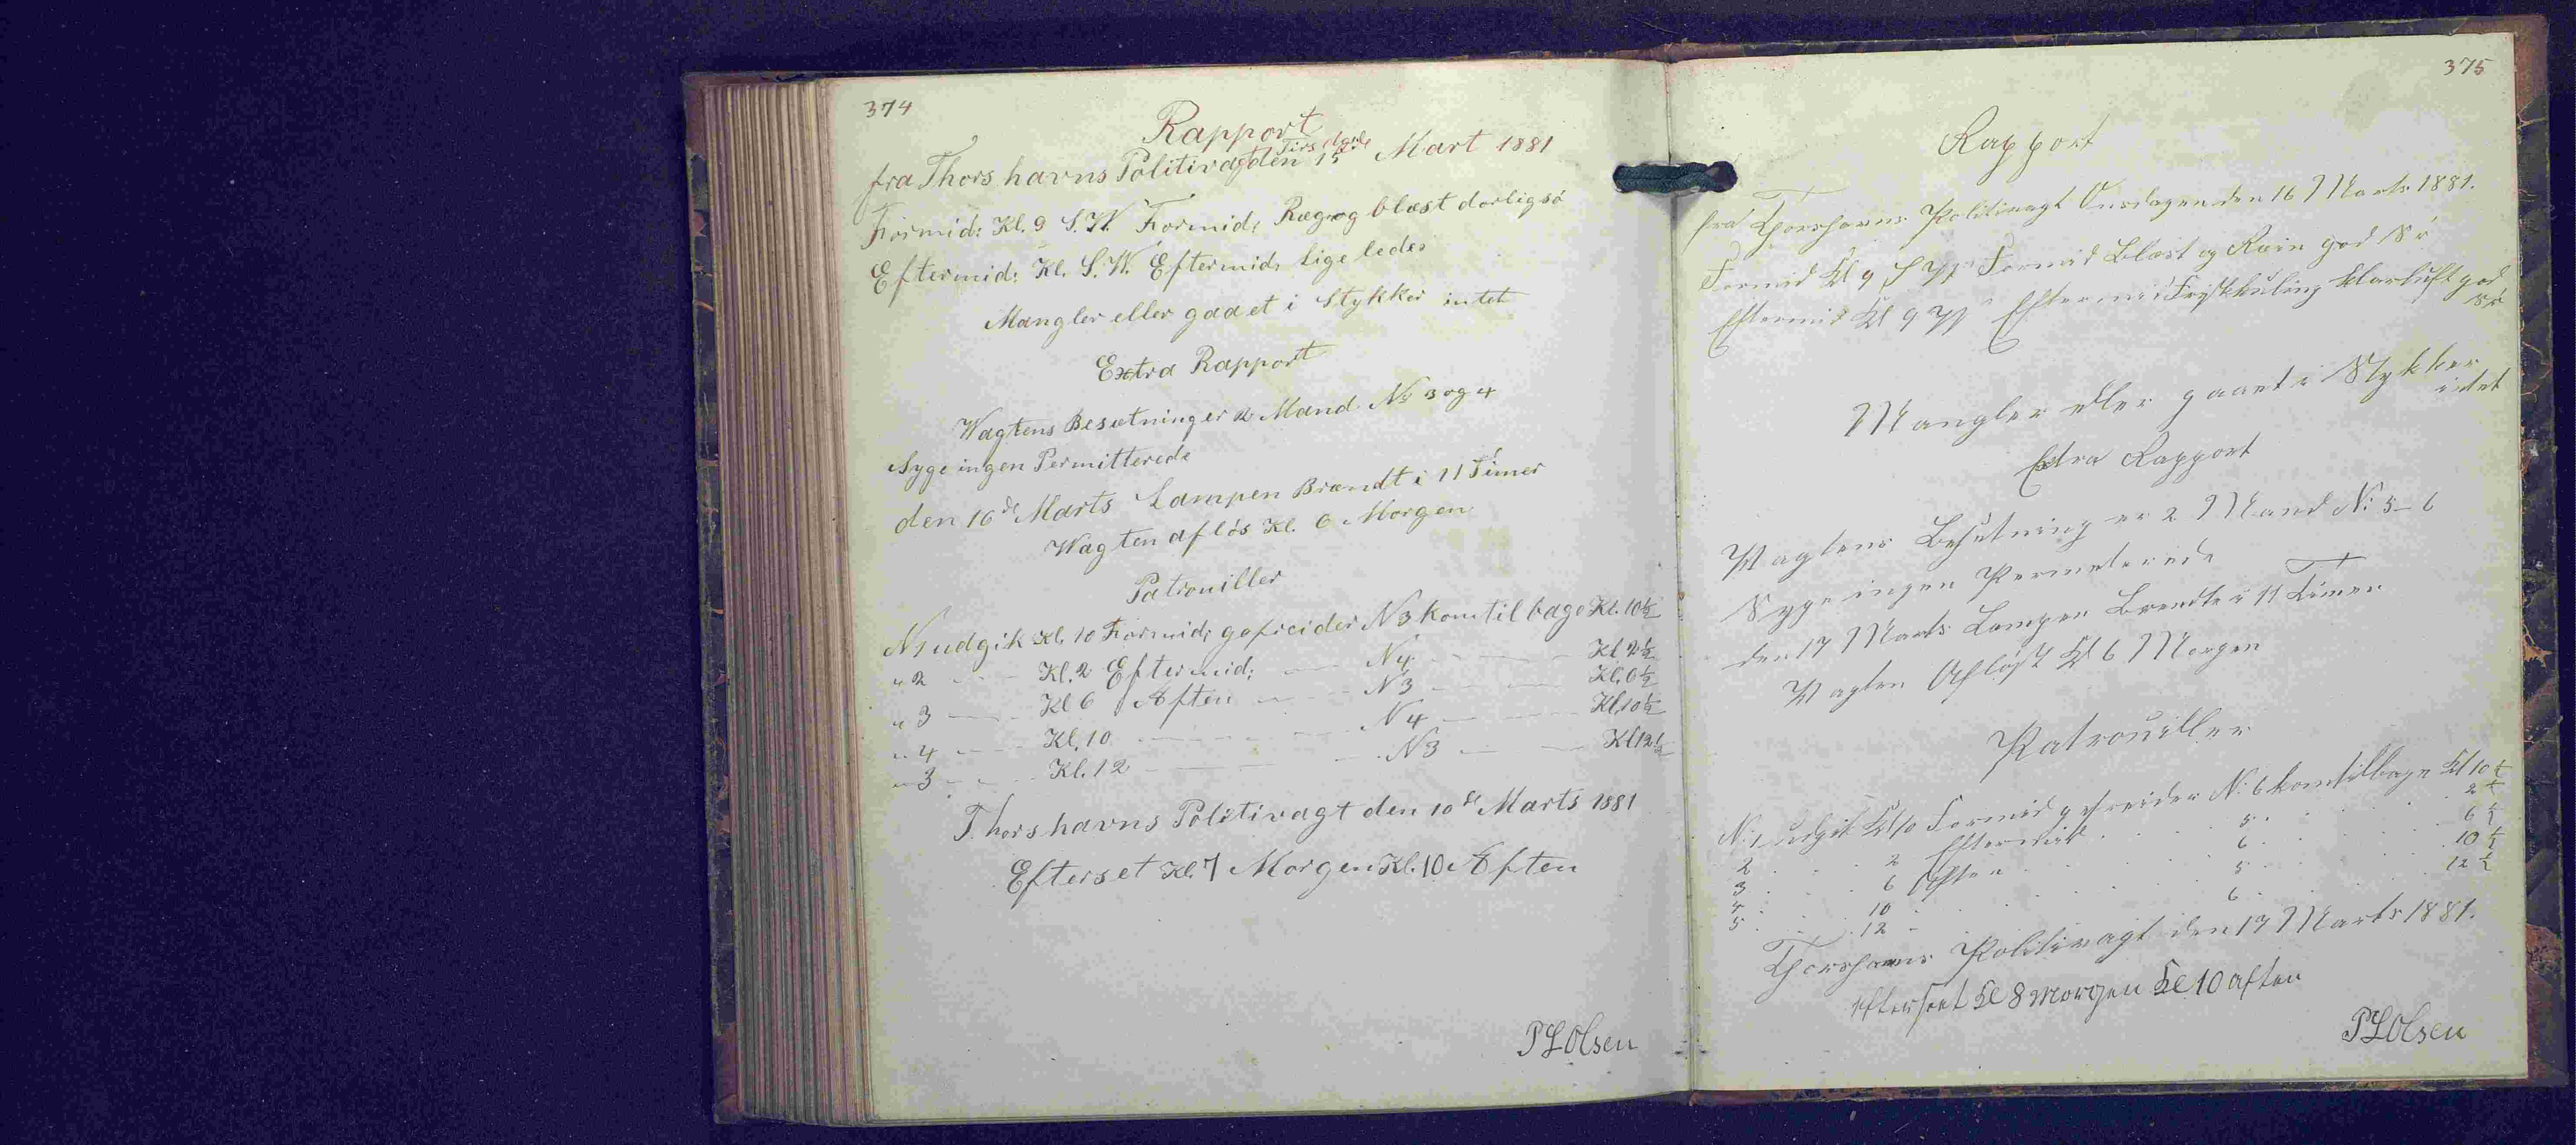 374
Rapport
fra Thorshavns Politivagt Tirsdag den 15de Mart 1881
Formid: Kl. 9 S.W. Formid: Regn og blæst dorlig sö
Eftermid: Kl. S.W. Eftermid, lige ledes
Mangler eller gaaet i Stykker intet
Extra Rapport
Wagtens Besætning er 2 Mand. No 3 og 4
Syge ingen Permitterede
den 16de Marts Lampen Brændt i 11 Timer
Wagten aflös Kl. 6 Morgen
Patrouiller
N1 udgik Kl. 10 Formid; gefreider N3 kom tilbage Kl. 10½
" 2 — — Kl. 2 Eftermid; — N4 — — Kl 2½
" 3 — — Kl 6 Aften — — N3 — — Kl. 6½
" 4 — — Kl. 10 — — N4 — — Kl 10½
" 3 — — Kl. 12 — — N3 — — Kl 12½
Thorshavns Politivagt den 16de Marts 1881
Efterset Kl. 7 Morgen Kl. 10 Aften
P L Olsen
375
Rapport
fra Thorshavns Politivagt Onsdagen den 16 Marts 1881.
Formid Kl 9 S W Formid Blæst og Rein god Sö
Eftermid Kl 9 W Eftermid Friskkuling klarluft god
Sö
Mangler eller gaaet i Stykker
intet
Extra Rapport
Wagtens Besetning er 2 Mand No 5–6
Syge ingen Permeterede
den 17 Marts Lampen Brendte i 11 Timer
Wagten Aflöst Kl 6 Morgen
Patrouiller
No 1 udgik Kl 10 Formid gefreider No 6 kom tilbage Kl 10½
2 . . 2 Eftermid . . 5 . . 2½
3 . . 6 Aften . . 6 . . 6½
4 . . 10 . . 5 . . 10½
5 . . 12 . . 6 . . 12½
Thorshavns Politivagt den 17 Marts 1881.
Efterseet Kl 8 Morgen Kl 10 aften
P L Olsen